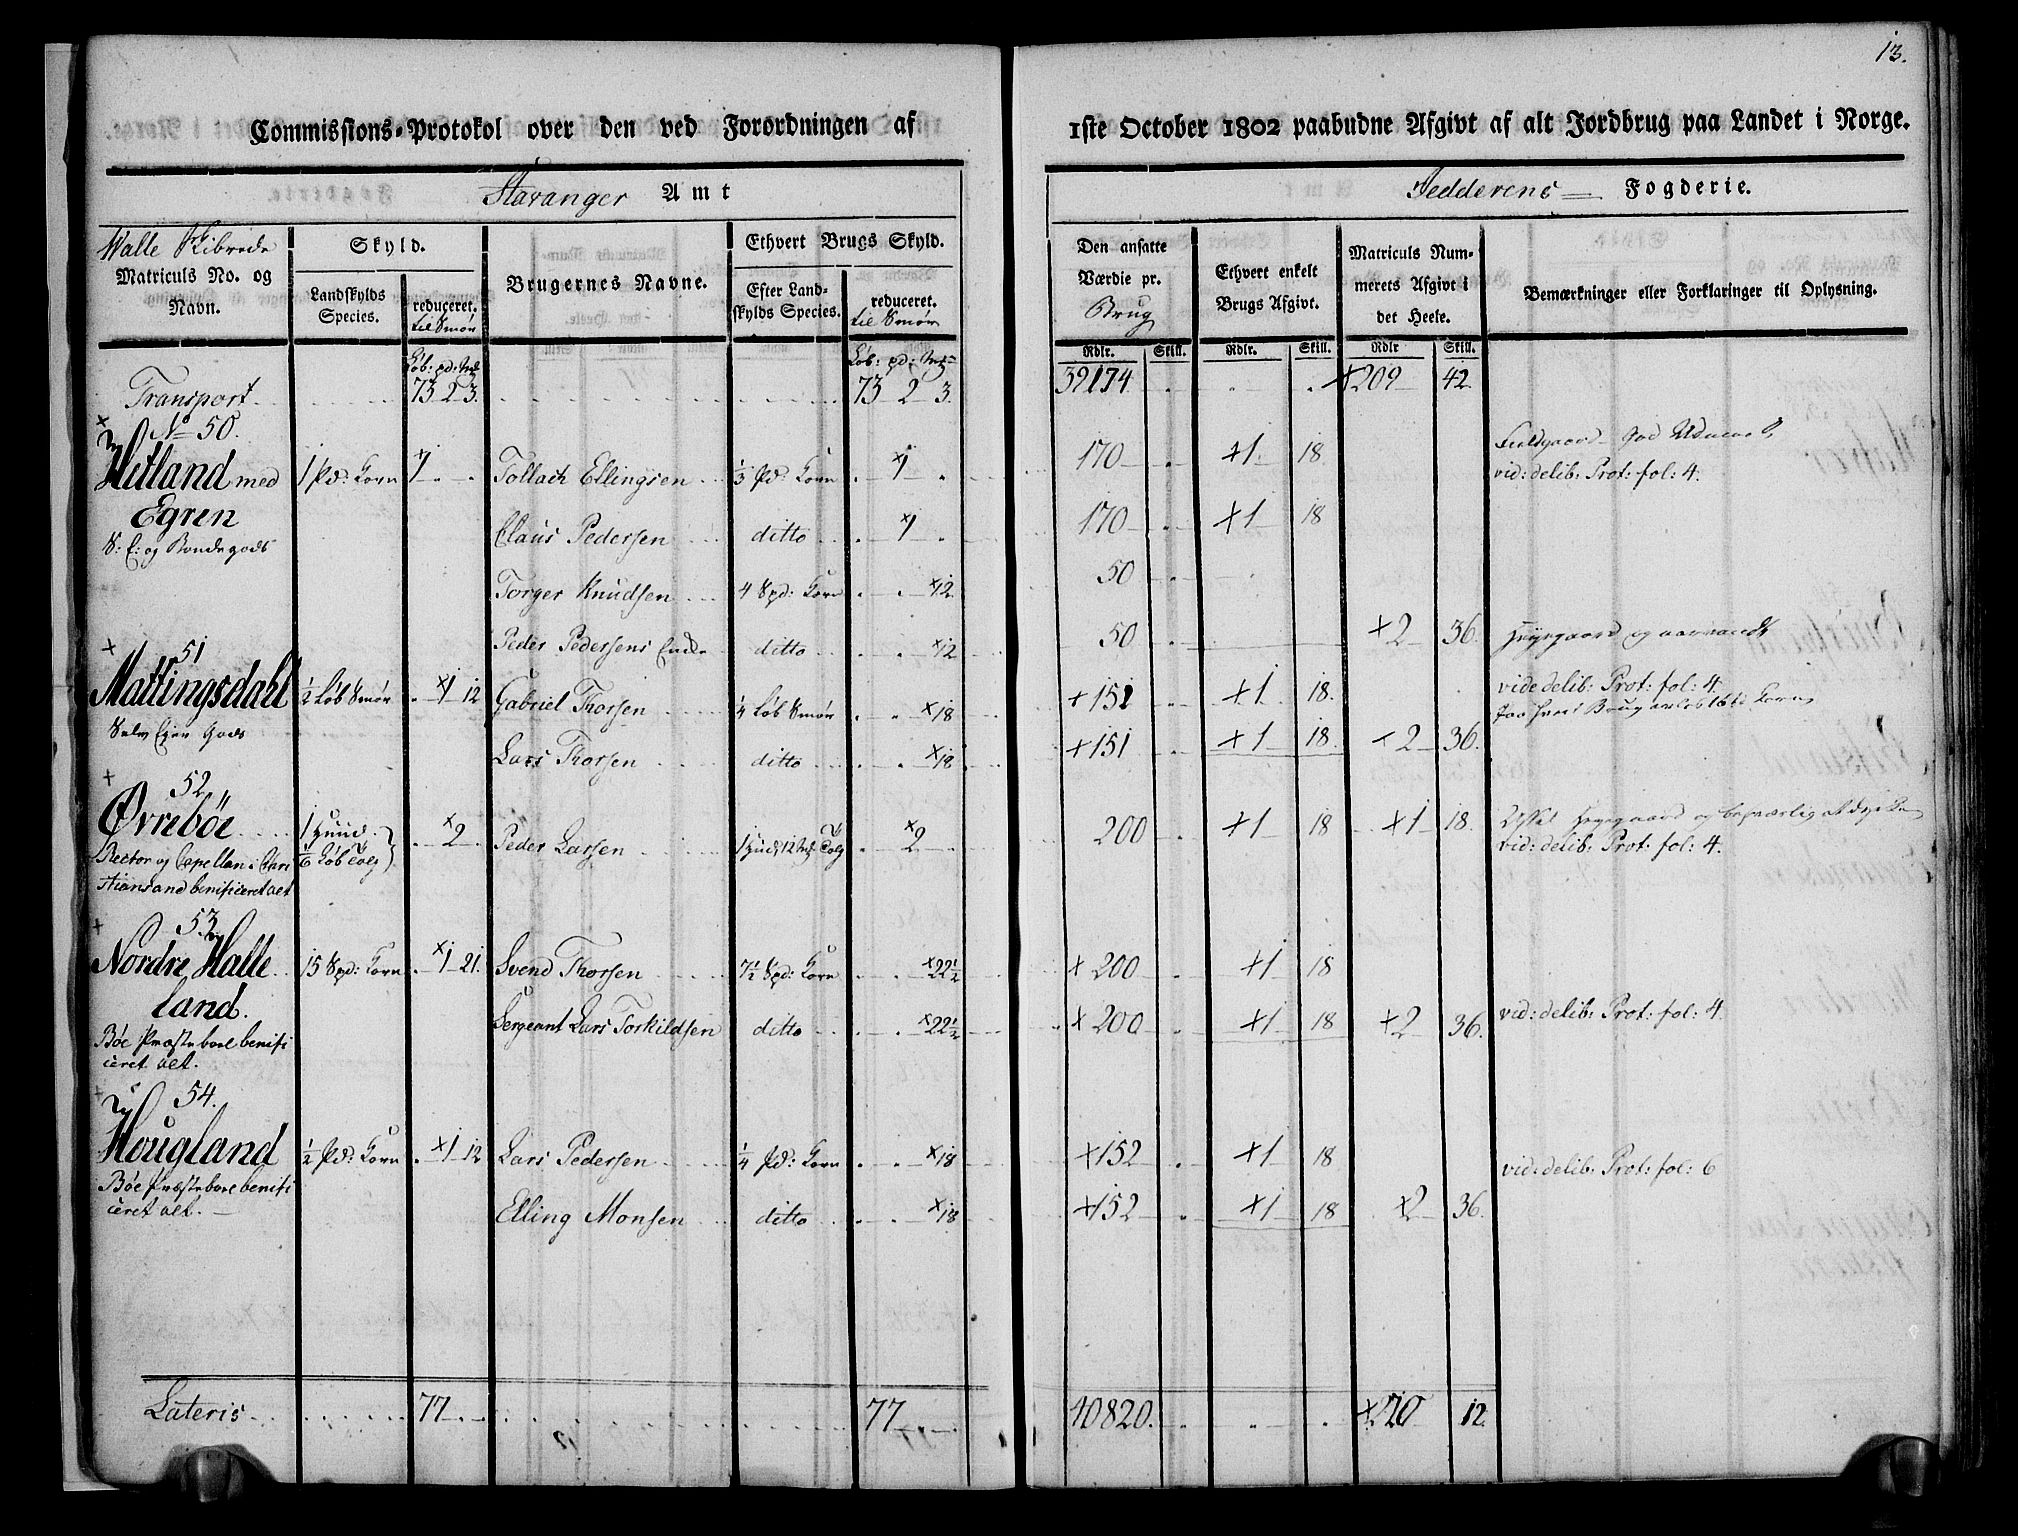 13.
Commissions-Protokol over den ved Forordningen af 1ste October 1802 paabudne Afgivt af alt Jordbrug paa Landet i Norge.
Stavanger Amt
Jedderens Fogderie.
Walle Skibrede
Matriculs No. og Navn.
Skyld.
Landskylds Species.
reduceret. til Smör
Brugernes Navne.
Ethvert Brugs Skyld.
Efter Landskylds Species.
reduceret. til Smör
Den ansatte Værdie pr. Brug
Ethvert enkelt Brugs Afgivt.
Matriculs Nummerets Afgivt i det Heele.
Bemærkninger eller Forklaringer til Oplysning.
Löb: pd: mk Löb: pd: mk Rdlr. Skill. Rdlr. Skill. Rdlr Skill.
Transport 73 2 3. 73 2 3. 39174 +209 42
+ No 50.
Hetland med 1 Pd: Korn +1 Tollach Ellingsen 1/3 Pd: Korn +1 170 +1 18
vid: delib: Prot: fol: 4.
Egren Claus Pedersen ditto +1 170 +1 18
S: E: og Bondegods
Torger Knudsen 4 Spd: Korn +12 50
Peder Pedersens ditto +12 50 +2 36.
+ 51
Mattingsdahl 1/2 Löb Smör +1 12 Gabriel Thorsen 1/4 Löb Smör +18 +151 +1 18.
vide delib: Prot: fol: 4
Selv Eyer Gods Lars Thorsen ditto +18 +151 +1 18. +2 36.
+ 52
Øvreböe 1 Huud 1/6 Löb Talg +2 Peder Larsen 1 Hud, 12 mk Talg +2 200 +1 18 +1 18.
vid: delib: Prot: fol: 4.
Rector og Capellan i Christiansand benificeret alt
+ 53
Nordre Halleland. 15 Spd: Korn +1 21. Svend Thorsen 7½ Spd: Korn +22½ +200 +1 18
Sergeant Lars Torkildsen ditto +22½ +200 +1 18 +2 36.
vid: delib: Prot: fol: 4.
Böe Præstebole benificeret alt.
+ 54.
Hougland 1/2 Pd: Korn +1 12 Lars Pedersen 1/4 Pd: Korn +18 +152 +1 18
vid: delib: Prot: fol: 6
Böe Præstebole benificeret alt. Elling Monsen ditto +18 +152 +1 18 +2 36.
Lateris 77 77 40820. +220 12